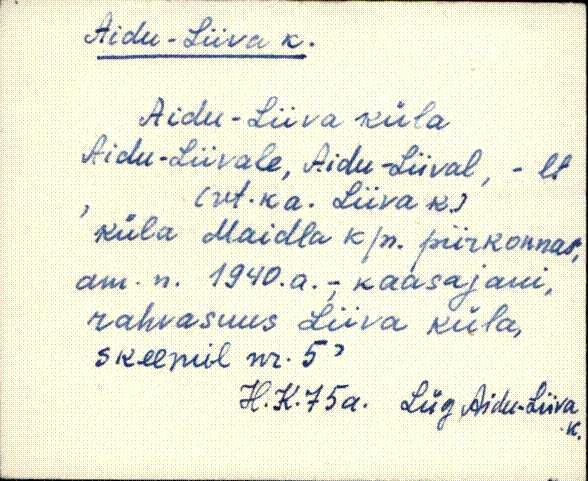 Aidu-Liiva k.
Aidu-Liiva küla
Aidu-Liivale, Aidu-Liival, -lt
(vt. ka. Liiva k.)
, küla Maidla k/n. piirkonnas,
am. n. 1940.a.-, kaasajani,
rahvasuus Liiva küla,
skeemil nr. 5 ,
H.K.75a. Lüg Aidu-Liiva
k.